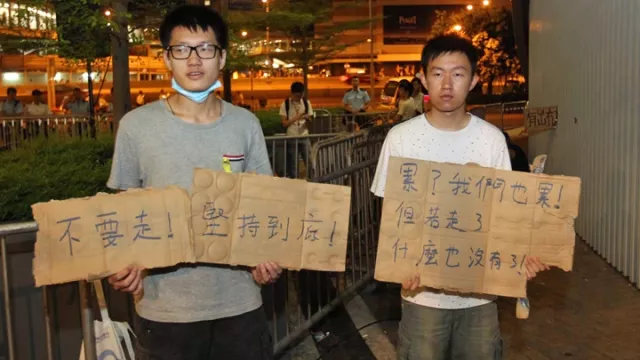 PIAGET
不要走！堅持到底！
累了我們也累！
但若走了
什麼也沒有了！